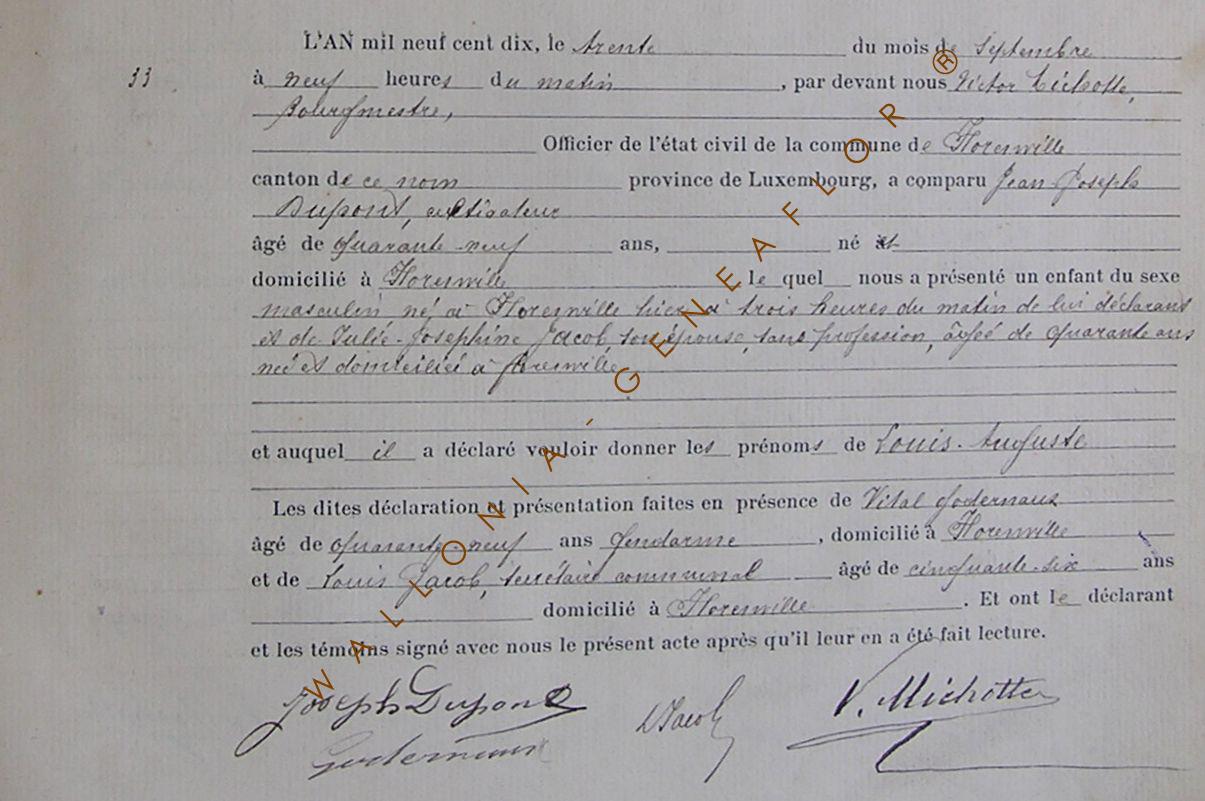 L'AN mil neuf cent dix, le trente du mois de Septembre
33 à neuf heures du matin, par devant nous Victor Michotte,
Bourgmestre,
Officier de l'état civil de la commune de Florenville
canton de ce nom province de Luxembourg, a comparu Jean-Joseph
Dupont, cultivateur
âgé de quarante-neuf ans, né et
domicilié à Florenville lequel nous a présenté un enfant du sexe
masculin né à Florenville hier à trois heures du matin de lui déclarant
et de Julie-Josephine Jacob, son épouse, sans profession, âgée de quarante ans
née et domiciliée à Florenville
et auquel il a déclaré vouloir donner les prénoms de Louis-Auguste
Les dites déclaration et présentation faites en présence de Vital Godernaux
âgé de quarante-neuf ans gendarme, domicilié à Florenville
et de Louis Jacob, secrétaire communal âgé de cinquante-six ans
domicilié à Florenville. Et ont le déclarant
et les témoins signé avec nous le présent acte après qu'il leur en a été fait lecture.
Joseph Dupont LJacob V. Michotte
Godernaux
WALLONIA-GENEAFLOR®